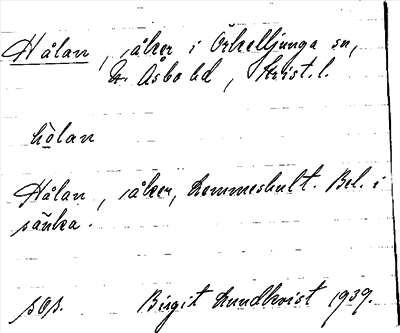 Hålan, åker i Örkelljunga sn,
N. Åsbo hd, Krist. l.
hålan
Hålan, åker, Lemmeshult. Bel. i
sänka.
sOs. Birgit Lundkvist 1939.